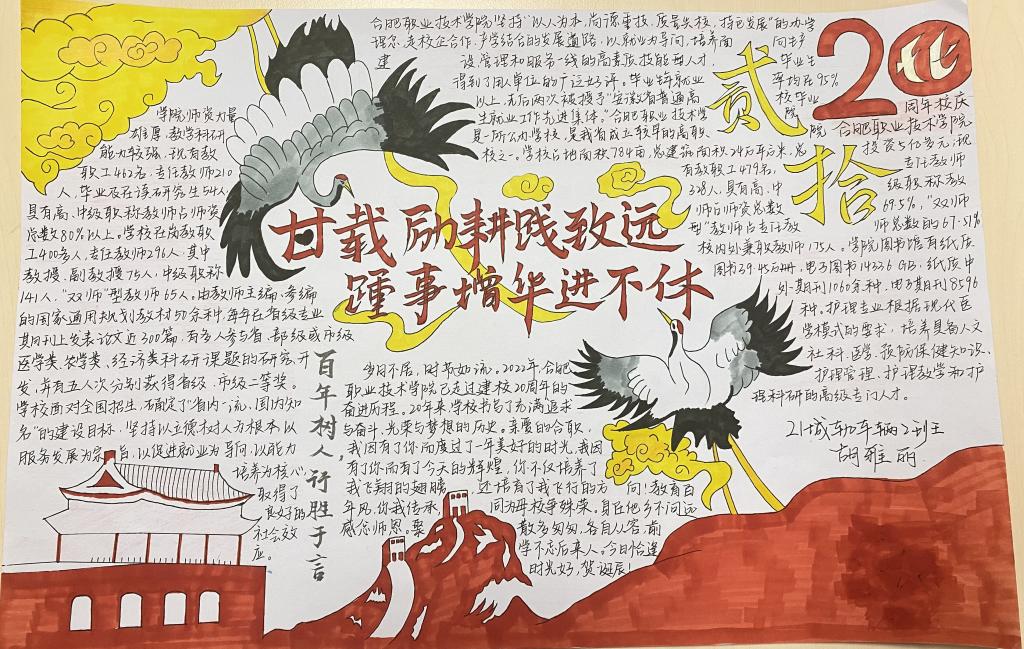 廿载励耕践致远
踵事增华进不休
贰拾
20
周年校庆
合肥职业技术学院坚持“以人为本,尚德重技,质量
发展”的办学
理念,走校企合作、产学结合的发展道路,以就业为导向,培养面
向生产
建
设、管理和服务一线的高素质技能型人才,
毕业生
得到了用人单位的广泛好评。毕业生就业
率均在95%
以上,先后两次被授予“安徽省普通高
校毕业
生就业工作先进集体。”合肥职业技术学
院
院
是一所公办学校,是我省成立较早的高职
校之一。学校占地面积784亩,总建筑面积24万平方米,总
合肥职业技术学院
投资5亿多元,现
有教职工479名,
专任教师
328人,具有高、中
级职称教
师占师资总数
69.5%,“双师
型”教师占专任教
师总数的67.51%
校内外兼职教师175人。学院图书馆有纸质
图书39.45万册,电子图书14336 GB,纸质中
外期刊1060余种,电子期刊8596
种。护理专业根据现代医
学模式的要求,培养具备人文
社科、医学、预防保健知识、
护理管理、护理教学和护
理科研的高级专门人才。
学院师资力量
雄厚,教学科研
能力较强,现有教
职工462名,专任教师210
人,毕业及在读研究生54人,
具有高、中级职称教师占师资
总数80%以上。学校在岗教职
工400余人,专任教师296人,其中
教授、副教授75人,中级职称
141人,“双师”型教师65人。由教师主编、参编
的国家通用规划教材50余种,每年在省级专业
期刊上发表论文近300篇,有多人参与省、部级或市级
医学类、农学类、经济类科研课题的研究、开
发,并有五人次分别获得省级、市级一等奖。
学校面对全国招生,确定了“省内一流,国内知
名”的建设目标,坚持以立德树人为根本,以
服务发展为宗旨,以促进就业为导向,以能力
培养为核心,
取得了
良好的
社会效
应。
百年树人,行胜于言
岁月不居,时节如流。2022年,合肥
职业技术学院已走过建校20周年的
奋进历程。20年来,学校书写了充满追求
与奋斗,光荣与梦想的历史。亲爱的合职,
我因有了你而度过了一年美好的时光,我因
有了你而有了今天的辉煌,你不仅培养了
我飞翔的翅膀 还培育了我飞行的方 向!教育百
年风,你我传承, 同为母校争殊荣。身在他乡不问远
感念师恩。聚 散多匆匆,各自从容,前
学不忘后来人。今日恰逢
时光好,贺诞辰!
21城轨车辆2班
胡雅丽